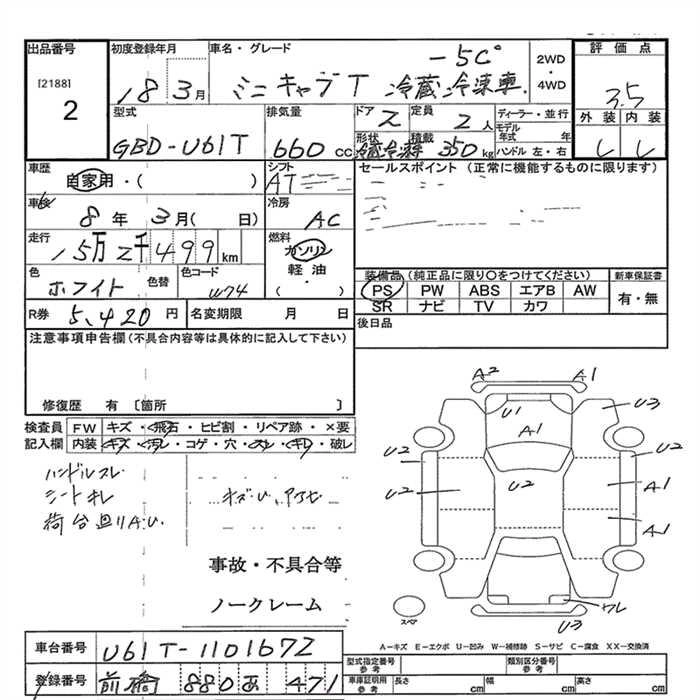 出品番号 初度登録年月 車名・グレード -5C° 2WD・4WD 評価点
[2188] 2 18 3月 ミニキャブT 冷蔵冷凍車 3.5
型式 排気量 ドア 定員 ディーラー・並行 外装 内装
GBD-U61T 660 cc 2 2人 モデル年式 年
形状 積載 冷蔵冷凍 350kg ハンドル 左・右 し し
車歴 自家用・( ) シフト AT セールスポイント (正常に機能するものに限ります)
車検 8年 3月( 日) 冷房 AC
走行 15万2千499km 燃料 ガソリン 軽油・( )
色 ホワイト 色替 色コード W74
装備品 (純正品に限り○をつけてください) 新車保証書
PS PW ABS エアB AW 有・無
SR ナビ TV カワ
R券 5,420円 名変期限 月 日 後日品
注意事項申告欄(不具合内容等は具体的に記入して下さい)
修復歴 有 〔箇所 〕
検査員 FW キズ・飛石・ヒビ割・リペア跡・×要
記入欄 内装 キズ・汚レ・コゲ・穴・スレ・キレ・破レ
ハンドルスレ
シートキレ
荷台廻りA.U.
キズU、
事故・不具合等
ノークレーム
A2 A1
U1 U3
A1
U2 U2
U2 U2 A1
A1
ワレ
スペア U3
A-キズ E-エクボ U-凹み W-補修跡 S-サビ C-腐食 XX-交換済
車台番号 U61T-1101672
型式指定番号 参考 類別区分番号 参考
登録番号 前橋 880 あ 471
車庫証明用 参考 長さ cm 幅 cm 高さ cm